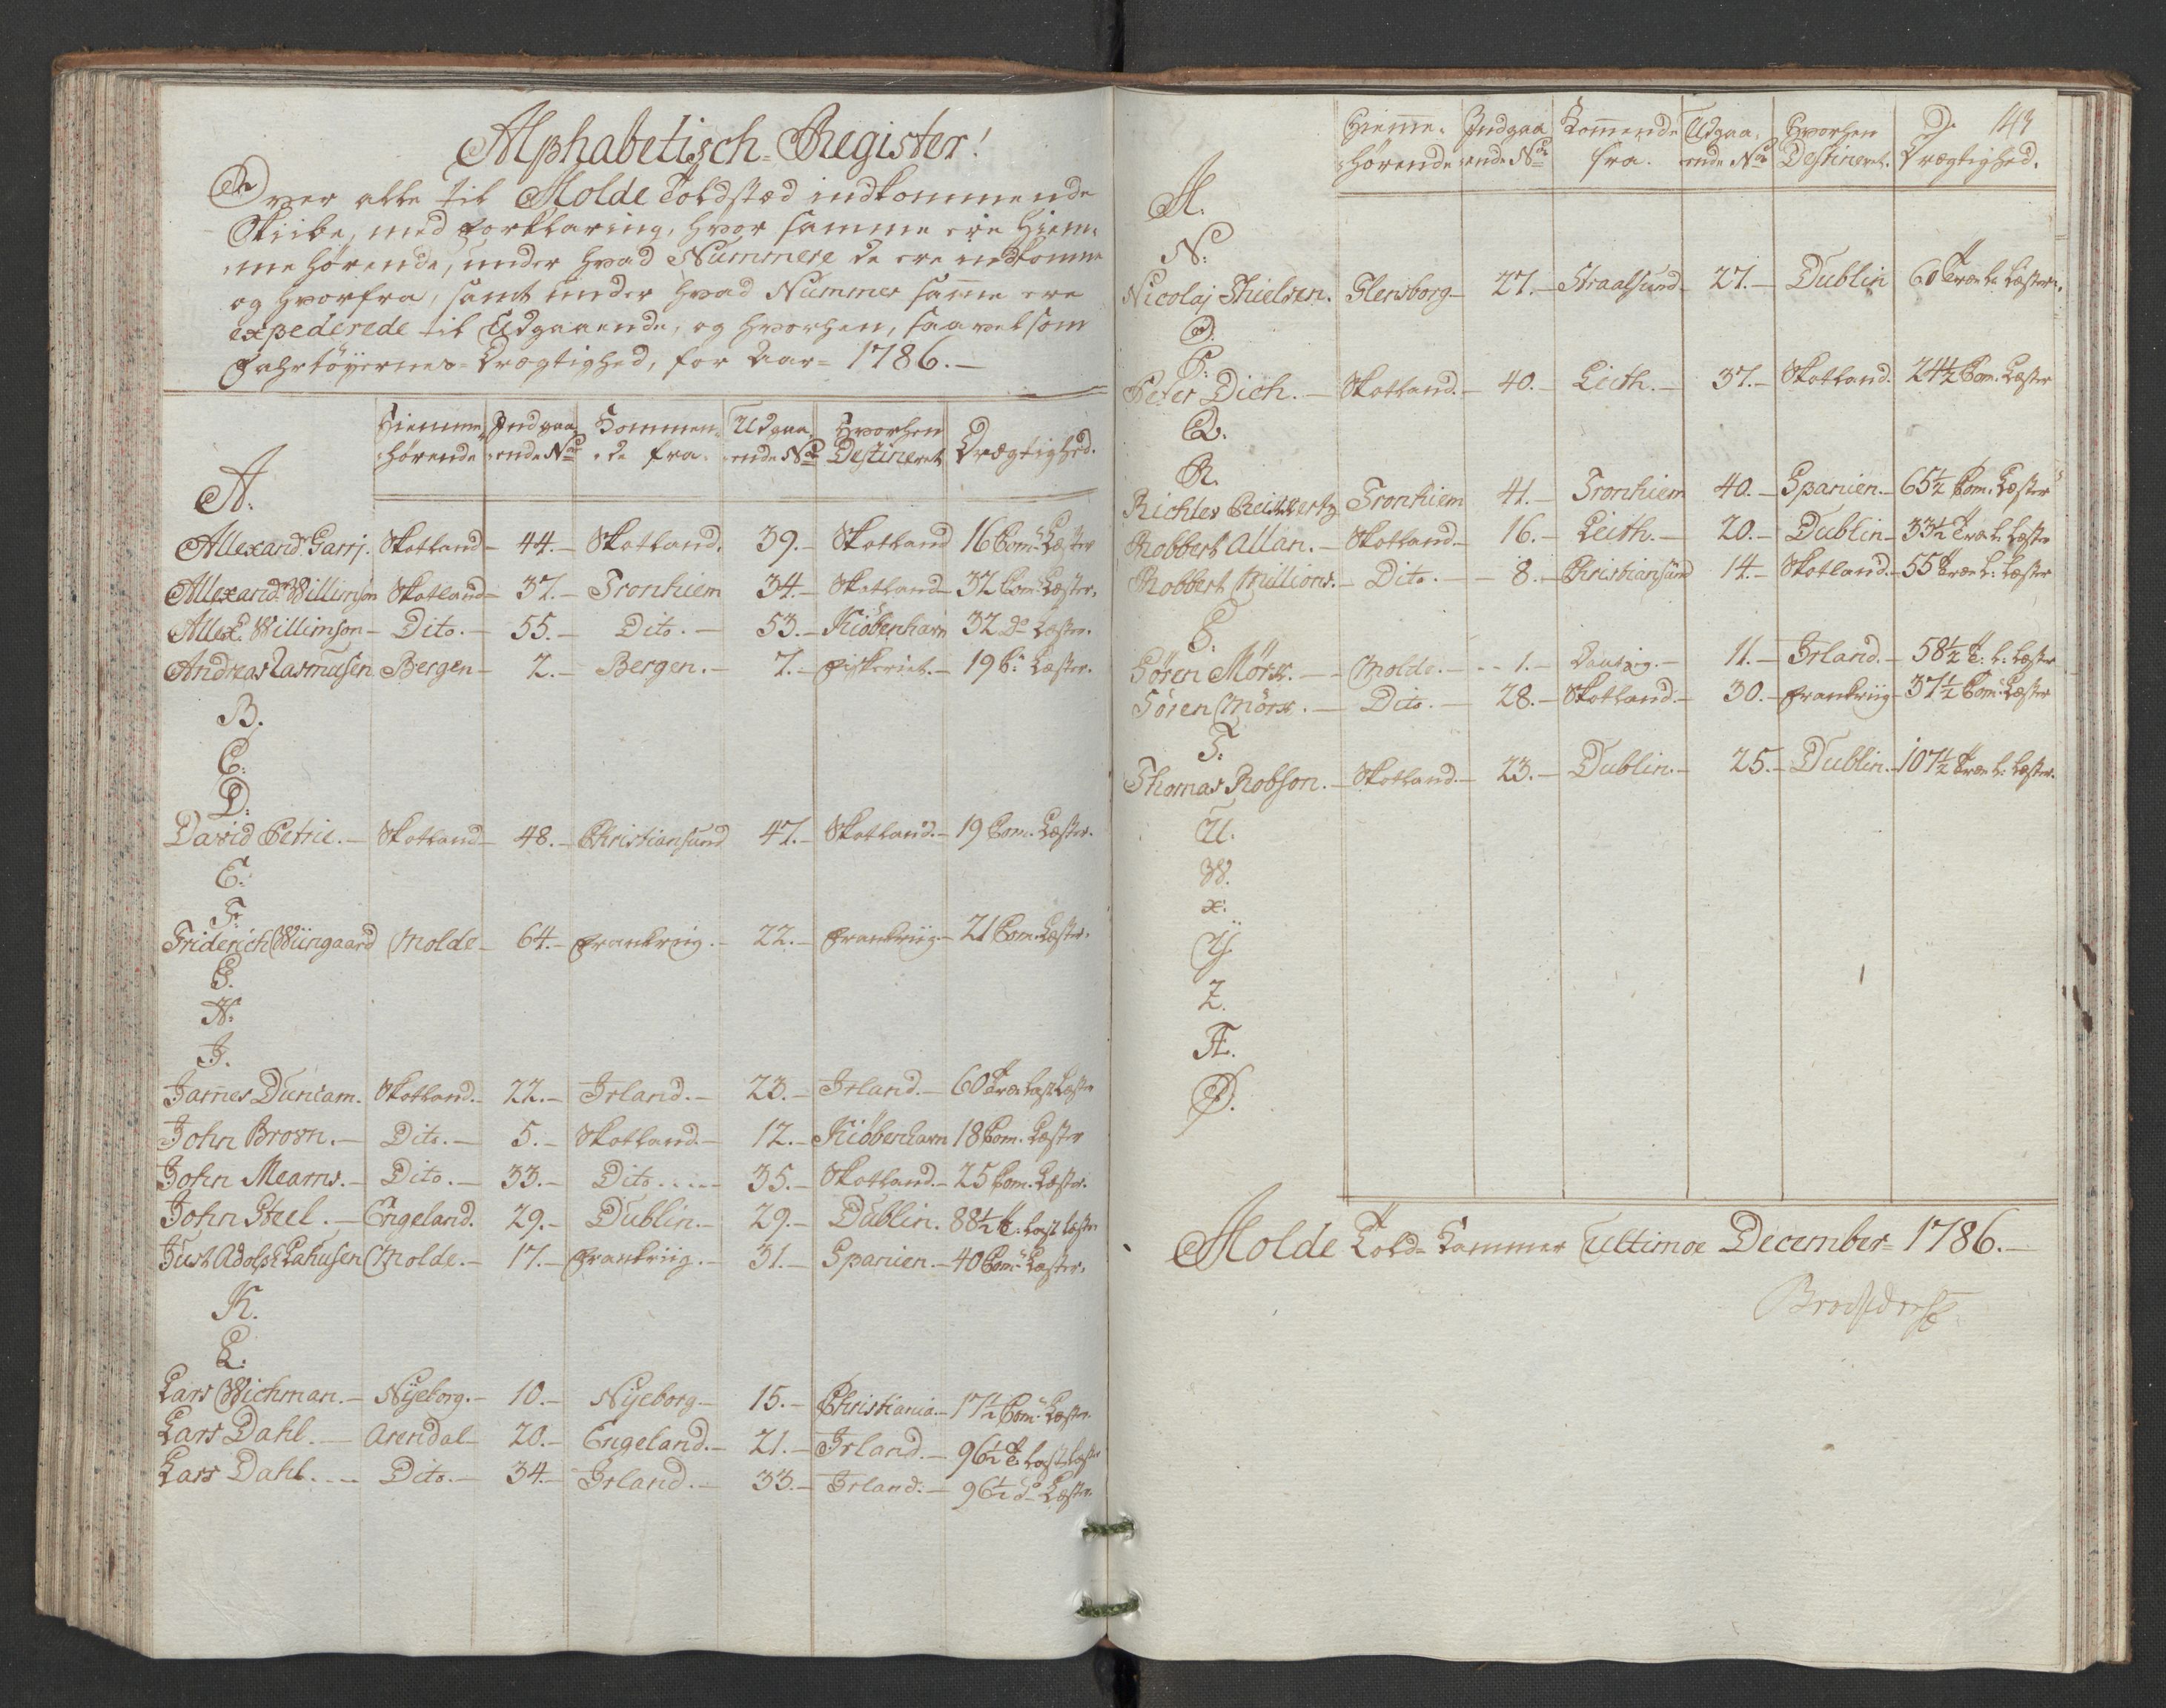 Alphabetisch Register!
Over alle til Molde Toldsted indkommende
Skiibe, med Forklaring, hvor samme ere Hiem-
mehörende, under hvad Nummere de ere indkomne
og hvorfra, samt under hvad Nummer samme ere
expederede til Udgaaende, og hvorhen, saavelsom
Fahrtöyernes Drægtighed, for Aar= 1786.—
Hiemme- hörende Indgaa- ende No Kommen- de fra. Udgaa- ende No Hvorhen Destineret Drægtighed.
A.
Allexandr Garrj. Skotland— 44.— Skotland. 39.— Skotland 16 Com: Læster
Allexandr Willimson Skotland— 37.— Tronhiem 34.— Skotland— 32 Com: Læster.
Allexr Willimson— Dito.— 55.— Dito.— 53.— Kiöbenhavn 32 do Læster.
Andreas Rasmusen Bergen— 2.— Bergen.— 7.— Fiskeriet.— 19 C: Læster.
B.
C.
D.
David Petrie.— Skotland— 48.— Christiansund 47.— Skotland.— 19 Com. Læster.
E.
F.
Friderich Wiingaard Molde— 64.— Frankriig.— 22.— Frankriig.— 21 Com. Læster.
G.
H.
I.
James Duncam. Skotland.— 22.— Irland.— 23.— Irland.— 60 Træ Last Læster
John Brovn.— Dito.— 5.— Skotland— 12.— Kiöbenhavn 18 Com. Læster
John Mearns.— Dito.— 33.— Dito..... 35.— Skotland.— 25 Com. Læster.
John Steel.— Engeland. 29.— Dublin.— 29.— Dublin. 88½ T: Last Læster
Just Adolph Lahusen Molde.— 17.— Frankriig.— 31.— Spanien.— 40 Com: Læster.
K.
L.
Lars Wichman.— Nyeborg.— 10.— Nyeborg— 15.— Christiania.— 17½ Com: Læster.
Lars Dahl.— Arendal— 20.— Engeland.— 21.— Irland.— 96½ T: Last Læster
Lars Dahl.... Dito.— 34.— Irland.— 33.— Irland.— 96½ do Læster.
143
Hieme- hörende Indgaa ende No Kommende fra. Udgaa- ende No Hvorhen Destineret. Drægtighed.
M.
N.
Nicolaj Thielsen. Flensborg— 27.— Straalsund— 27.— Dublin 60 Træ L: Læster.
O.
P.
Peter Dich.— Skotland.— 40.— Leith.— 37.— Skotland. 24½ Com. Læster
Q.
R.
Tronhiem 41.— Tronhiem 40.— Spanien.— 65½ Com. Læster
Robbert Allan.— Skotland— 16.— Leith.— 20.— Dublin— 33½ Træ L: Læster
Robbert Millions.— Dito.— 8.— Christiansund 14.— Skotland.— 55 Træ L: Læster
S.
Sören Mörx.— Molde.— 1.— Dantzig.— 11.— Irland.— 58½ T: L: Læster
Sören Mörx.— Dito.— 28.— Skotland.— 30.— Frankriig— 37½ Com: Læster
T.
Thomas Robson.— Skotland.— 23.— Dublin.— 25.— Dublin.— 107½ Træ L: Læster.
U.
W.
X.
Y.
Z.
Æ.
Ø.
Molde Told-Kammer Ultimoe December= 1786.—